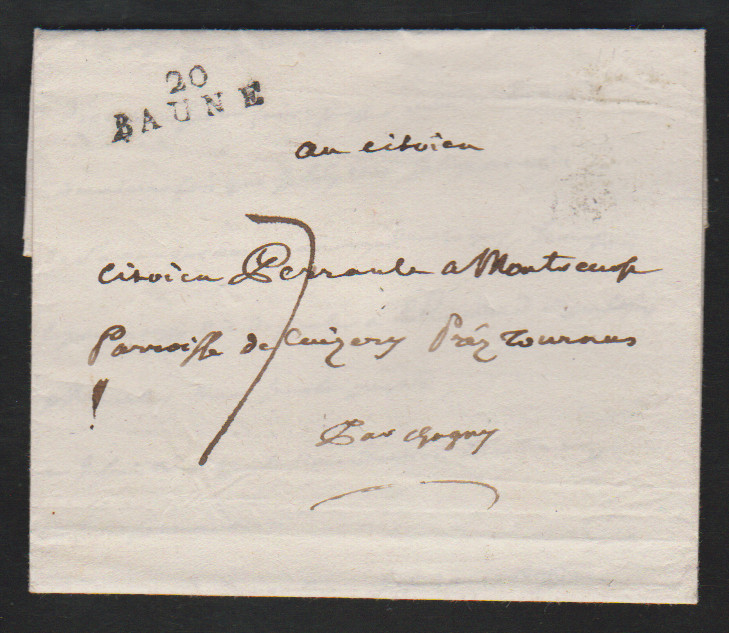 20
BAUNE
au citoien
7
citoien Perraule a Montreuosp
Parroisse de Cuizery Préz Tournus
Par chagny